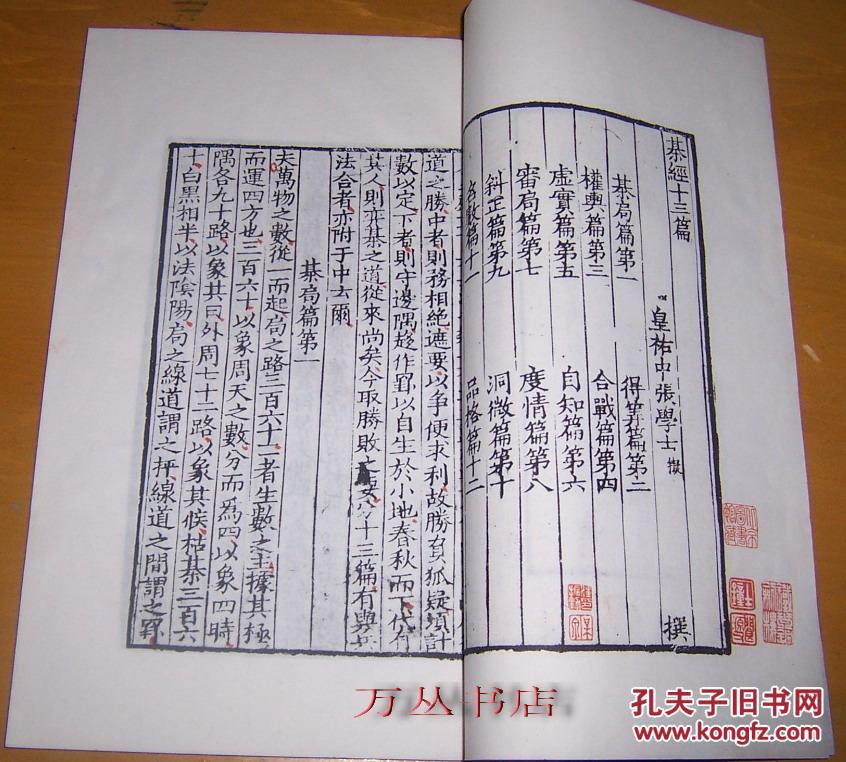 棊經十三篇
皇祐中張學士撰 撰
棊局篇第一 得筭篇第二
權輿篇第三 合戰篇第四
虛實篇第五 自知篇第六
審局篇第七 度情篇第八
斜正篇第九 洞微篇第十
名數篇十一 品格篇十二
道之勝中者則務相絶遮要以爭便求利故勝負狐疑須計
數以定下者則守邊隅趍作罫以自生於小地春秋而下代有
其人則弈棊之道從來尚矣今取勝敗之要分十三篇有與兵
法合者亦附于中云爾
棊局篇第一
夫萬物之數從一而起局之路三百六十一者生數之主據其極
而運四方也三百六十以象周天之數分而爲四以象四時
隅各九十路以象其日外周七十二路以象其候枯棊三百六
十白黑相半以法陰陽局之線道謂之枰線道之間謂之罫
万丛书店
孔夫子旧书网
www.kongfz.com